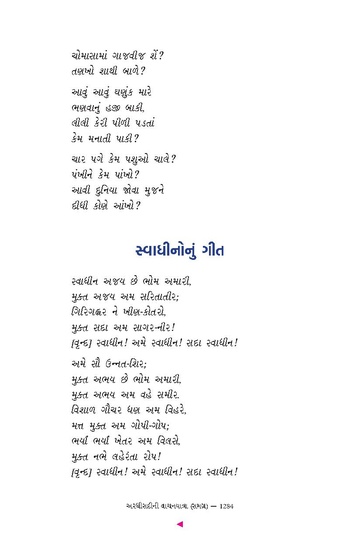 ચોમાસામાં ગાજવીજ શેં?
તણખો શાથી બાળે?
આવું આવું ઘણુંક મારે
ભણવાનું હજી બાકી,
લીલી કેરી પીળી પડતાં
કેમ મનાતી પાકી?
ચાર પગે કેમ પશુઓ ચાલે?
પંખીને કેમ પાંખો?
આવી દુનિયા જોવા મુજને
દીધી કોણે આંખો?
સ્વાધીનોનું ગીત
સ્વાધીન અજય છે ભોમ અમારી,
મુક્ત અજય અમ સરિતાતીર;
ગિરિગહ્વર ને ખીણ-કોતરો,
મુક્ત સદા અમ સાગર-નીર!
[વૃન્દ] સ્વાધીન! અમે સ્વાધીન! સદા સ્વાધીન!
અમે સૌ ઉન્નત-શિર;
મુક્ત અભય છે ભોમ અમારી,
મુક્ત અભય અમ વહે સમીર.
વિશાળ ગૌચર ધણ અમ વિહરે,
મત્ત મુક્ત અમ ગોપી-ગોપ;
ભર્યાં ભર્યાં ખેતર અમ વિલસે,
મુક્ત નભે લહેરંતા રોપ!
[વૃન્દ] સ્વાધીન! અમે સ્વાધીન! સદા સ્વાધીન!
અરધીસદીની વાચનયાત્રા (સમગ્ર) — 1284